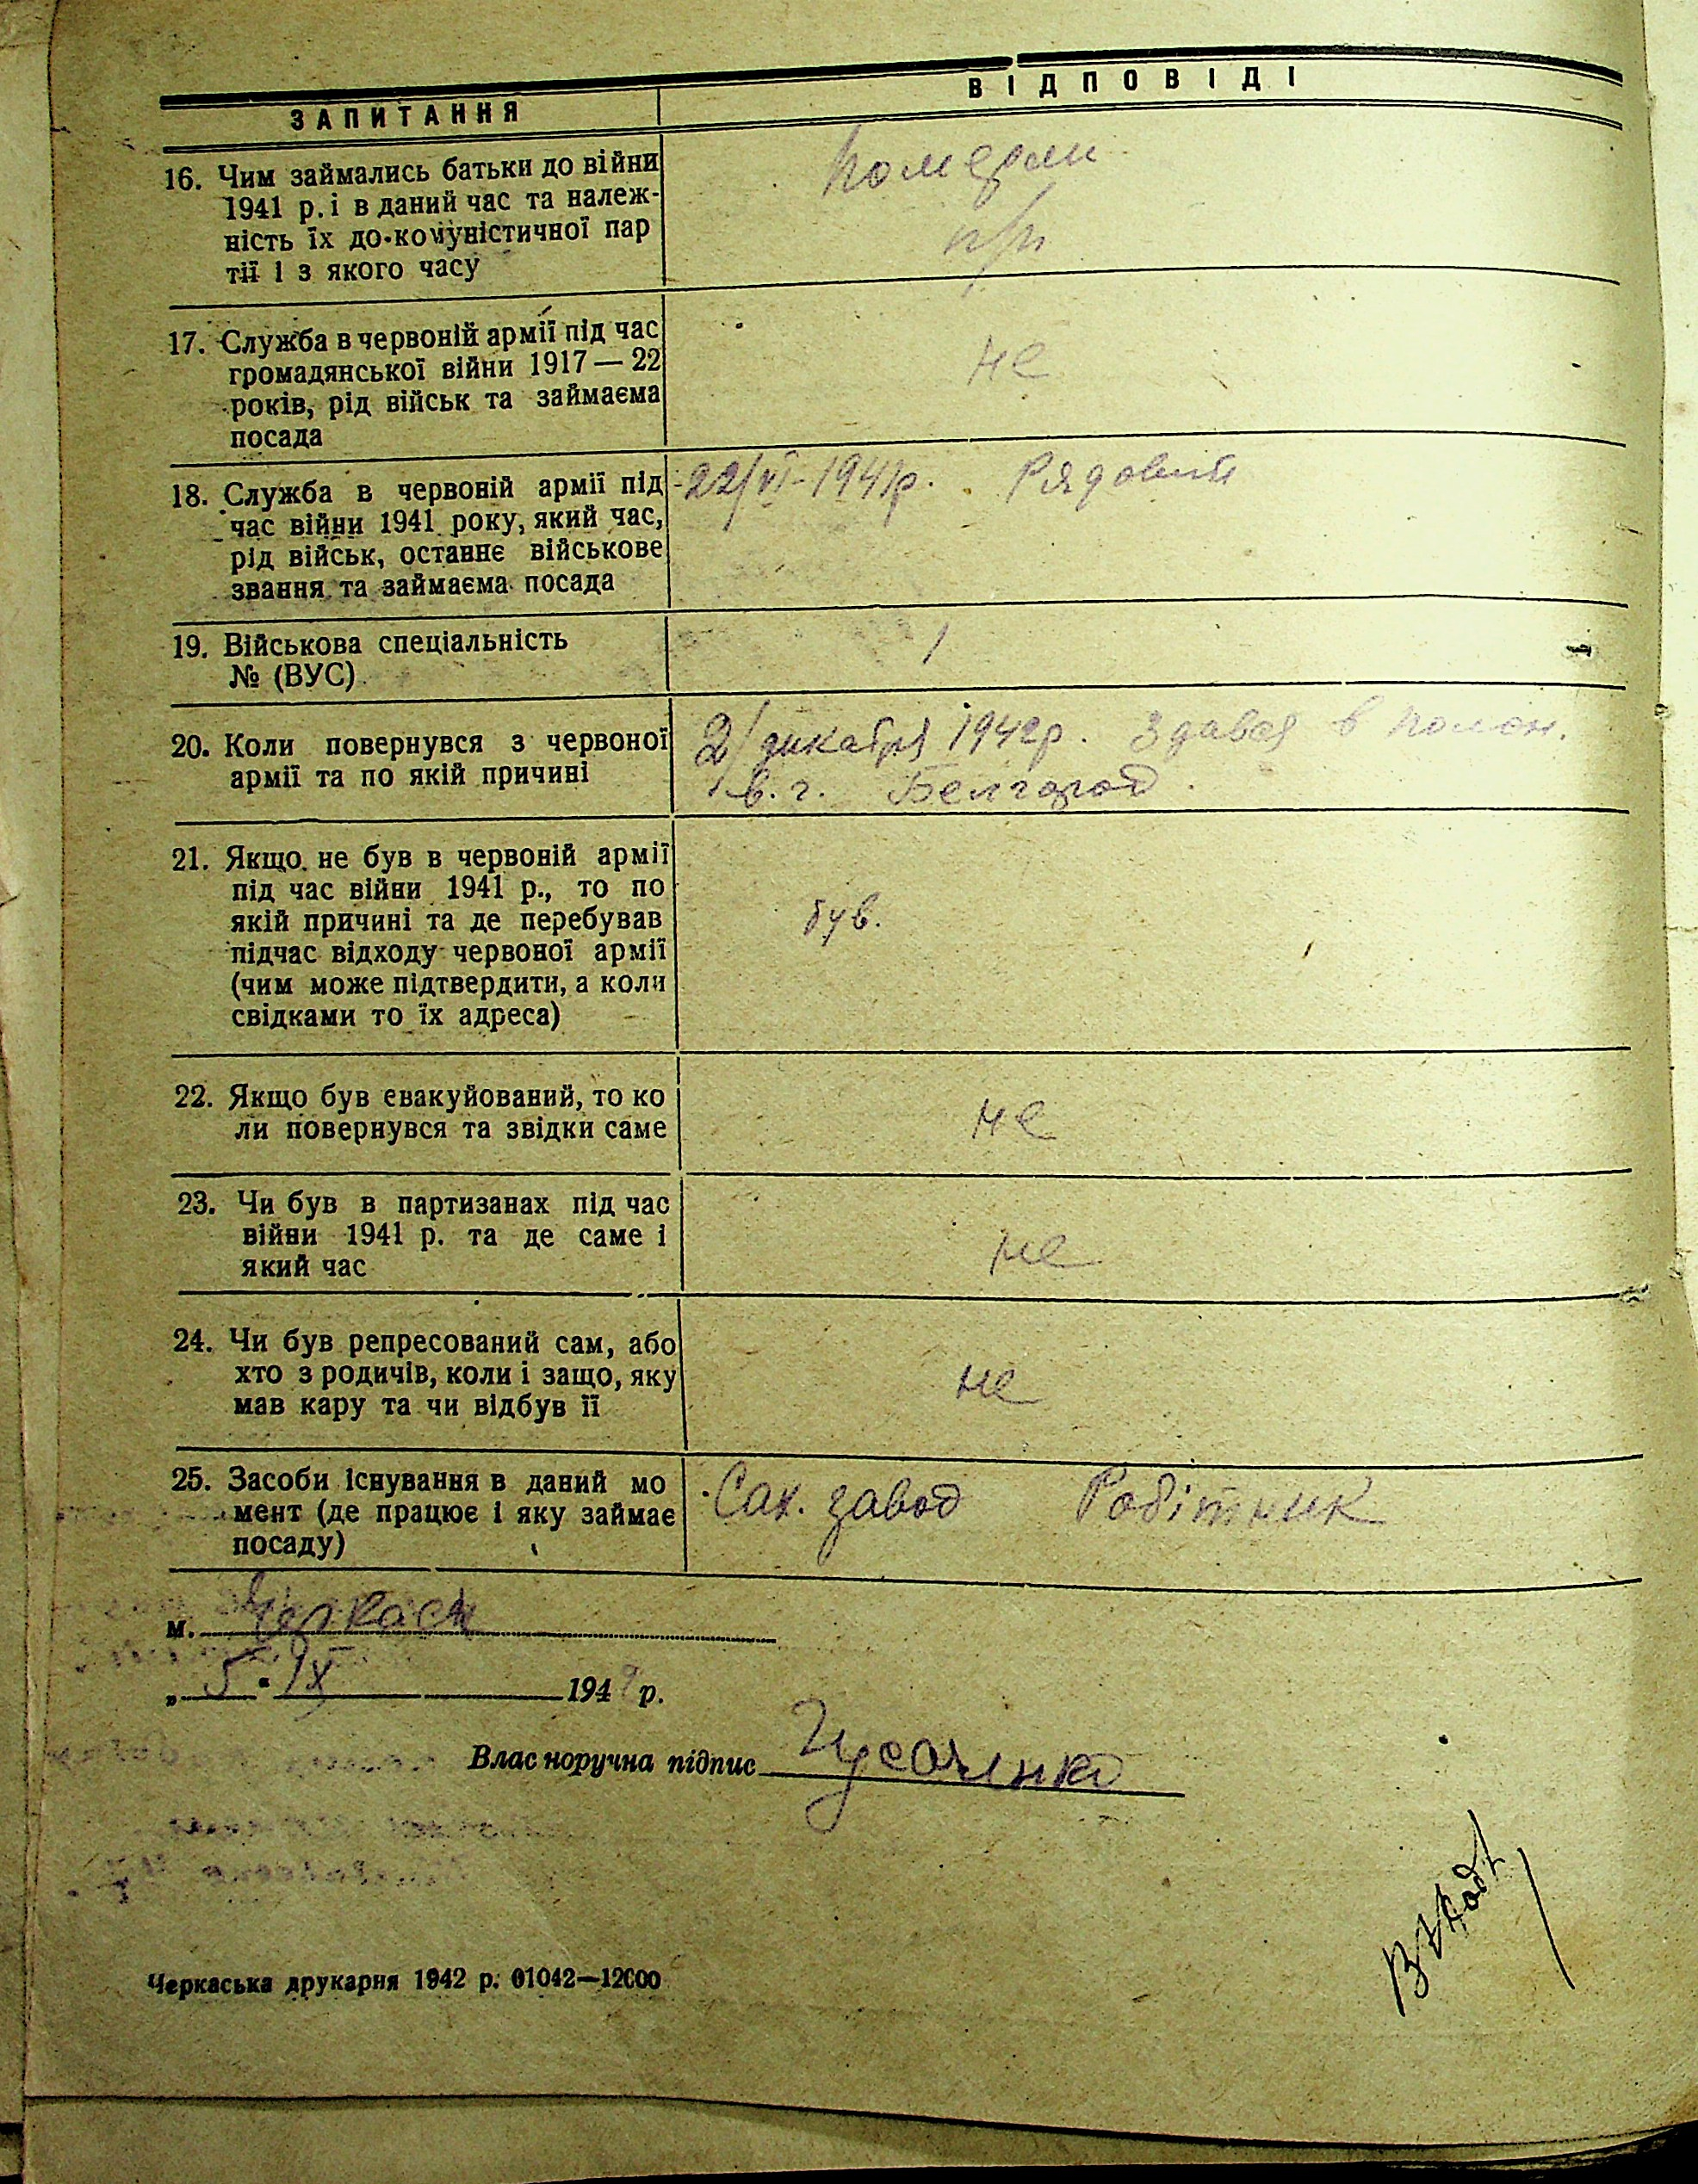 ЗАПИТАННЯ
ВІДПОВІДІ
16. Чим займались батьки до війни
1941 р. і в даний час та належ-
ність їх до комуністичної пар
тії і з якого часу
Померли
п/п
17. Служба в червоній армії під час
громадянської війни 1917 — 22
років, рід військ та займаєма
посада
не
18. Служба в червоній армії під
час війни 1941 року, який час,
рід військ, останнє військове
звання та займаєма посада
22/VI-1941р. Рядовий
19. Військова спеціальність
№ (ВУС)
/
20. Коли повернувся з червоної
армії та по якій причині
2/декабря 1941р. Здався в полон.
в. г. Белгород.
21. Якщо не був в червоній армії
під час війни 1941 р., то по
якій причині та де перебував
підчас відходу червоної армії
(чим може підтвердити, а коли
свідками то їх адреса)
був.
22. Якщо був евакуйований, то ко
ли повернувся та звідки саме
не
23. Чи був в партизанах під час
війни 1941 р. та де саме і
який час
не
24. Чи був репресований сам, або
хто з родичів, коли і защо, яку
мав кару та чи відбув її
не
25. Засоби існування в даний мо
мент (де працює і яку займає
посаду)
Сах. завод Робітник
м. Черкаси
„ 5 " IX 194 р.
Власноручна підпис Гусаченко
Черкаська друкарня 1942 р. 01042—12000